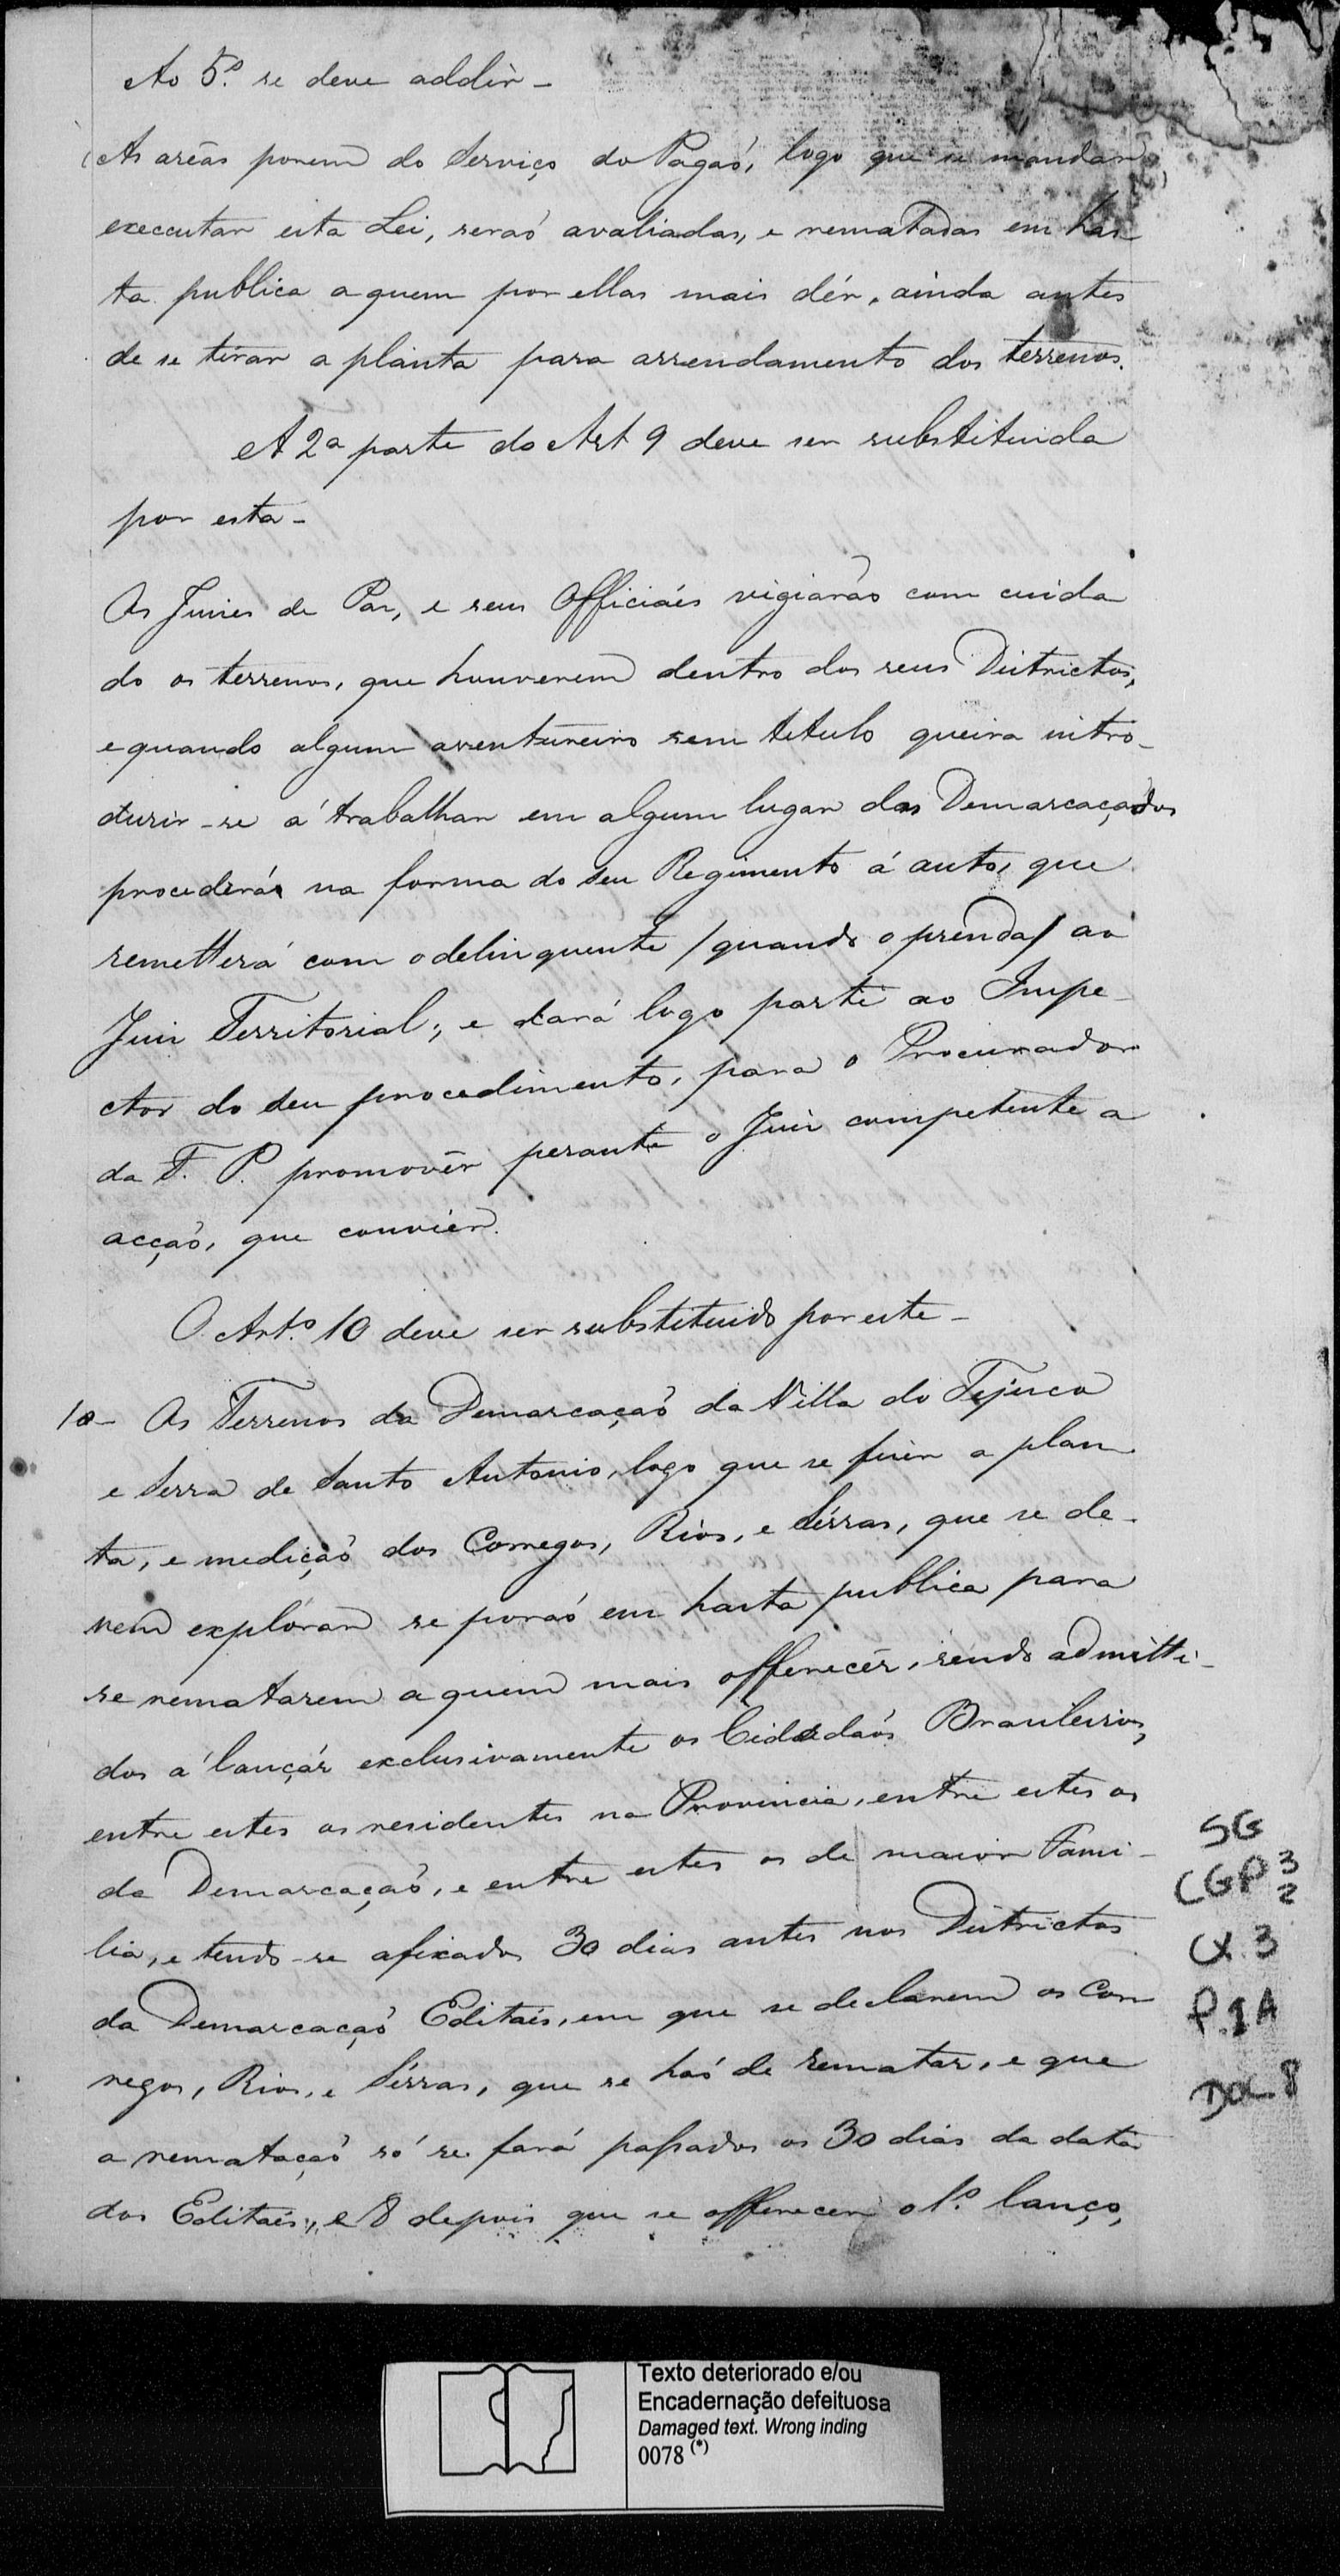 Ao 5.º se deve addir -
As arêas porem do Serviço do Pagaõ, logo que se mandar
executar esta Lei, seraõ avaliadas, e rematadas em has-
ta publica a quem por ellas mais dér, ainda antes
de se tirar a planta para arrendamento dos terrenos.
A 2ª parte do Art 9 deve ser substituida
por esta -
Os Juizes de Paz, e seus Officiáes vigiarão com cuida
do os terrenos, que houverem dentro dos seus Districtos,
e quando algum aventureiro sem titulo queira intro-
duzir-se á trabalhar em algum lugar das Demarcaçados
procederá na forma do seu Regimento á auto, que
remetterá com o delinquente /quando o prenda/ ao
Juiz Territorial; e dará logo parte ao Inspe-
ctor do seu procedimento, para o Procurador
da F. P. promovêr perante o Juiz competente a
acçaõ, que conviér.
O Art.º 10 deve ser substituido por este -
10 - Os Terrenos da Demarcaçaõ da Villa do Tejuco
e Serra de Santo Antonio, logo que se fizer a plan
ta, e mediçaõ dos Corregos, Rios, e Sérras, que se de-
vem explorar se poraõ em hasta publica para
se rematarem a quem mais offerecêr, sendo admitti-
dos á lançár exclusivamente os Cidadaõs Brazileiros,
entre estes os residentes na Provincia, entre estes os
da Demarcaçaõ, e entre estes os de maior Fami-
lia, e tendo-se afixado 30 dias antes nos Districtos
da Demarcaçaõ Editaes, em que se declarem os Cor
regos, Rios, e Sérras, que se haõ de rematar, e que
a remataçaõ só se fará passados os 30 dias da data
dos Editaes, e 8 depois que se offerecer o 1.º lanço,
SG
CGP 3
2
CX. 3
P. 1A
Doc. 8
Texto deteriorado e/ou
Encadernação defeituosa
Damaged text. Wrong inding
0078 (*)